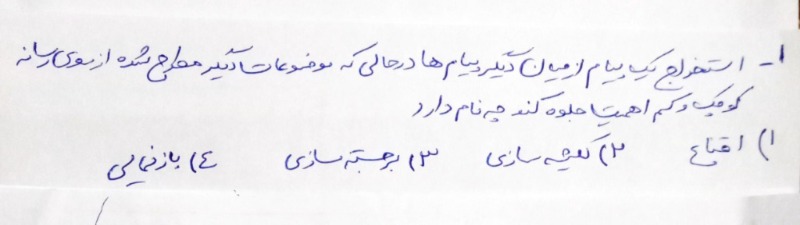 ۱- استخراج یک پیام از میان دیگر پیام ها درحالی که موضوعات دیگر مطرح شده از سوی رسانه
کوچک و کم اهمیت جلوه کند چه نام دارد
۱) اقناع ۲) کلیشه سازی ۳) برجسته سازی ٤) بازنمایی